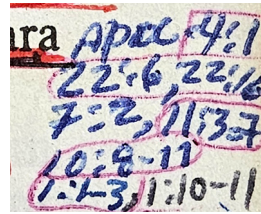 ara Apoc 4:1
22:6, 22:16
7:2, 11:3-7
10:8-11
1:1-3, 1:10-11